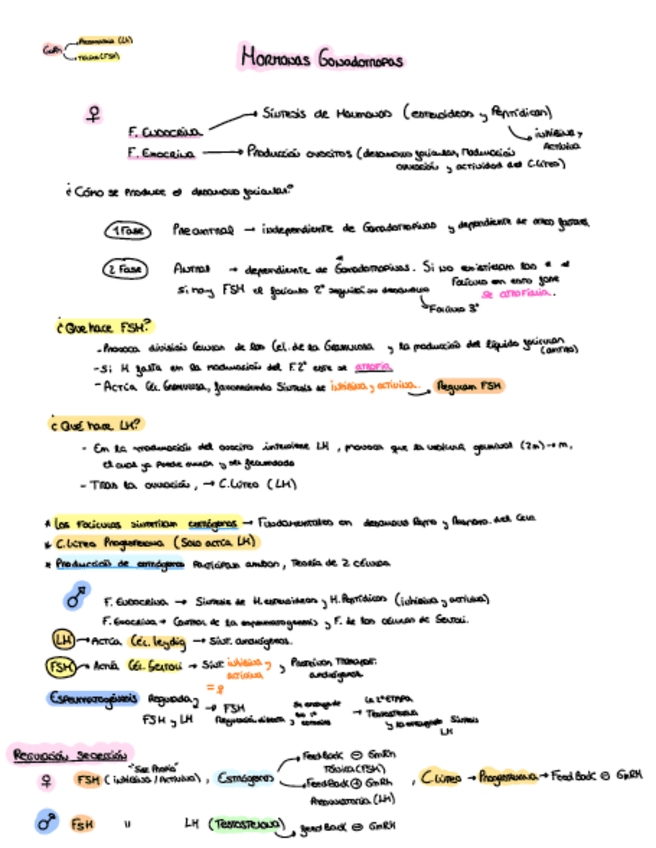 GnRH → Preovulatoria (LH)
→ Tónica (FSH)
Hormonas Gonadotropas
♀
F. Endocrina → Síntesis de Hormonas (esteroideas y Peptídicas)
→ inhibina y Activina
F. Exocrina → Producción ovocitos (desarrollo folicular, Maduración
ovulación y actividad del C. lúteo)
¿Cómo se produce el desarrollo folicular?
1 Fase Preantral → independiente de Gonadotropinas y dependiente de otros factores
2 Fase Antral → dependiente de Gonadotropinas. Si no existieran los
folículos en esta fase
se atrofiaria.
Si hay FSH el folículo 2º seguirá su desarrollo
→ Folículo 3º
¿Que hace FSH?
- Provoca división celular de las Cel. de la Granulosa y la producción del líquido folicular
(antro)
- Si H falta en la maduración del F. 2º este se atrofia
- Actúa Cél. Granulosa, favoreciendo Síntesis de inhibina y activina. → Regulan FSH
¿Qué hace LH?
- En la maduración del ovocito interviene LH, provoca que la vesícula germinal (2n) → n,
el cual ya puede ovular y ser fecundado
- Tras la ovulación, → C. lúteo (LH)
* Los Folículos sintetizan estrógenos → Fundamentales en desarrollo Repro y
* C. lúteo Progesterona (Solo actúa LH)
* Producción de estrógenos Participan ambas, Teoría de 2 células
♂
F. Endocrina → Síntesis de H. esteroideas y H. Peptídicas (inhibina y activina)
F. Exocrina → Control de la espermatogenesis y F. de las células de Sertoli.
LH → Actúa Cél. leydig → Sint. andrógenos.
FSH → Actúa Cél. Sertoli → Sint. inhibina y activina y Proteínas Transport.
andrógenos
= ♀
Espermatogénesis Regulada FSH y LH
→ FSH
Regulación directa
Se encarga de
la 1º
→ La 2º ETAPA
Testosterona
y la encargada Síntesis
LH
Regulación secreción
♀ FSH (inhibina / Activina), Estrógenos
→ FeedBack ⊖ GnRH
Tónica (FSH)
→ FeedBack ⊕ GnRH
Preovulatoria (LH)
, C. lúteo → Progesterona → FeedBack ⊖ GnRH
♂ FSH " LH (Testosterona) → feed Back ⊖ GnRH